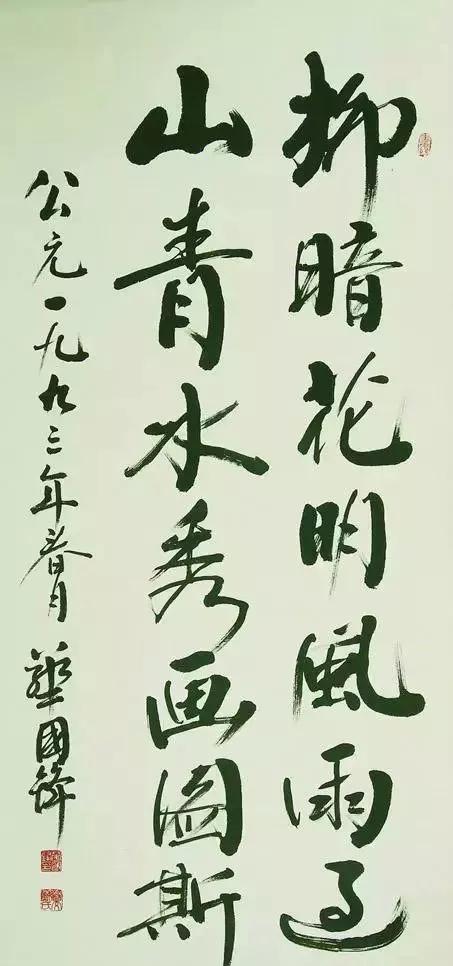 柳暗花明風雨过
山青水秀画图斯
公元一九九三年春月
華國鋒